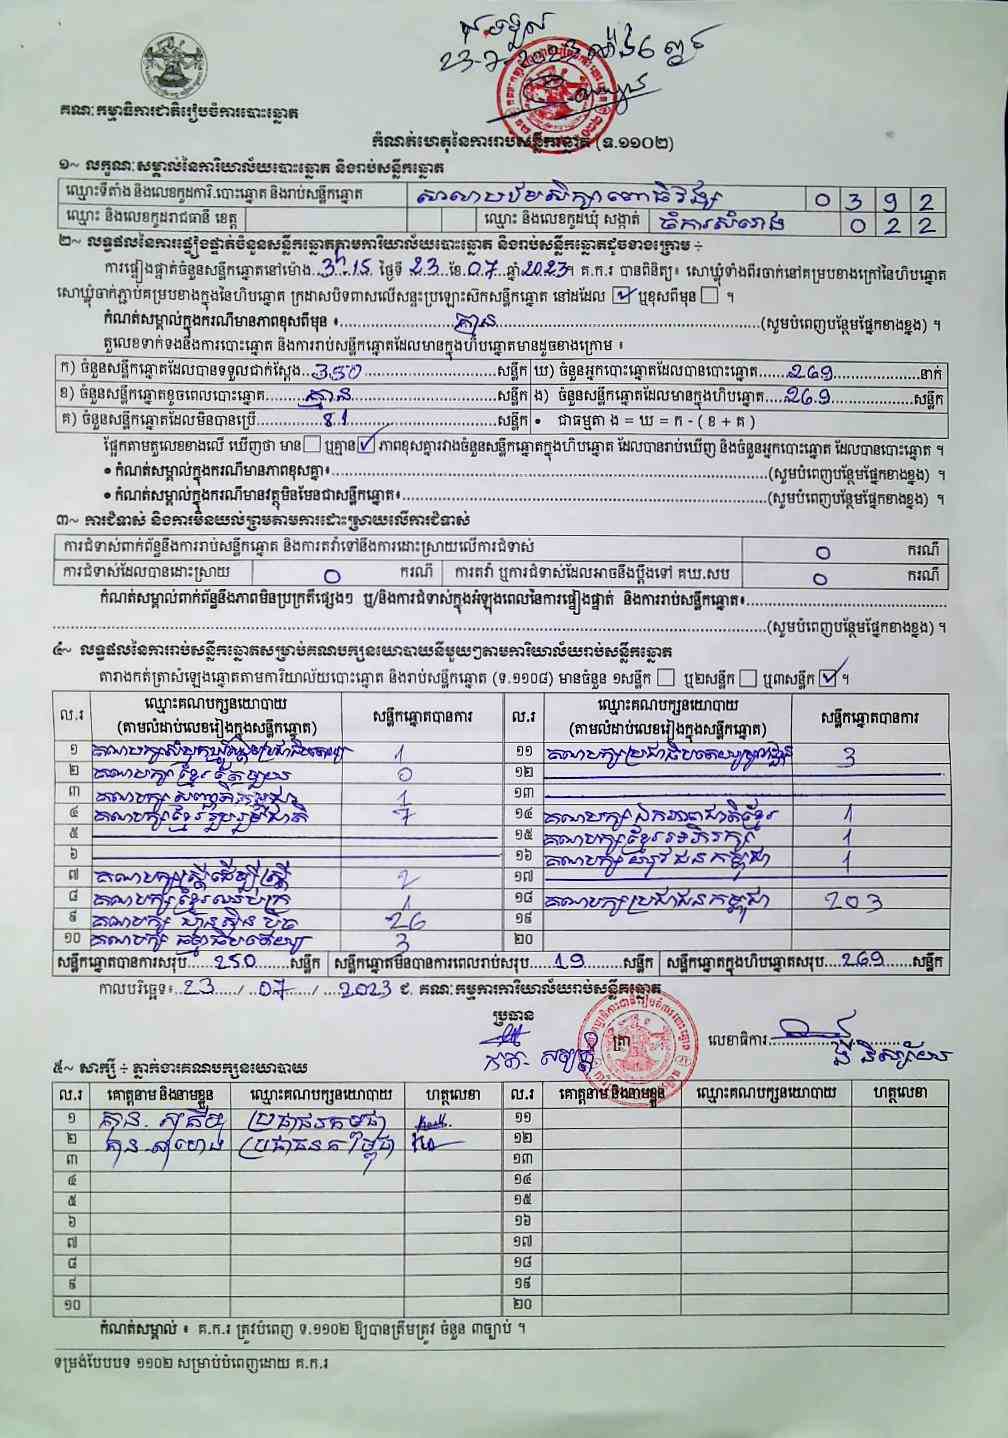 ជ ទទួល
23-7-2023
គណៈកម្មាធិការជាតិរៀបចំការបោះឆ្នោត
កំណត់ហេតុនៃការរាប់សន្លឹកឆ្នោត (ទ.១១០២)
១~ លក្ខណៈសម្គាល់នៃការិយាល័យបោះឆ្នោត និងរាប់សន្លឹកឆ្នោត
ឈ្មោះទីតាំង និងលេខកូដការិ.បោះឆ្នោត និងរាប់សន្លឹកឆ្នោត សាលាបឋមសិក្សាពោធិវង្ស 0 3 9 2
ឈ្មោះ និងលេខកូដរាជធានី ខេត្ត ឈ្មោះ និងលេខកូដឃុំ សង្កាត់ ចំការសំរោង 0 2 2
២~ លទ្ធផលនៃការផ្ទៀងផ្ទាត់ចំនួនសន្លឹកឆ្នោតតាមការិយាល័យបោះឆ្នោត និងរាប់សន្លឹកឆ្នោតដូចខាងក្រោម ÷
ការផ្ទៀងផ្ទាត់ចំនួនសន្លឹកឆ្នោតនៅម៉ោង 3h15 ថ្ងៃទី 23 ខែ 07 ឆ្នាំ 2023។ គ.ក.រ បានពិនិត្យ៖ សោឃ្លុំទាំងពីរចាក់នៅគម្របខាងក្រៅនៃហិបឆ្នោត
សោឃ្លុំចាក់ភ្ជាប់គម្របខាងក្នុងនៃហិបឆ្នោត ក្រដាសបិទពាសលើសន្ទះប្រឡោះស៊កសន្លឹកឆ្នោត នៅដដែល ☑ ឬខុសពីមុន ☐ ។
កំណត់សម្គាល់ក្នុងករណីមានភាពខុសពីមុន ៖ គ្មាន (សូមបំពេញបន្ថែមផ្នែកខាងខ្នង) ។
តួលេខទាក់ទងនឹងការបោះឆ្នោត និងការរាប់សន្លឹកឆ្នោតដែលមានក្នុងហិបឆ្នោតមានដូចខាងក្រោម ៖
ក) ចំនួនសន្លឹកឆ្នោតដែលបានទទួលជាក់ស្តែង 350 សន្លឹក ឃ) ចំនួនអ្នកបោះឆ្នោតដែលបានបោះឆ្នោត 269 នាក់
ខ) ចំនួនសន្លឹកឆ្នោតខូចពេលបោះឆ្នោត គ្មាន សន្លឹក ង) ចំនួនសន្លឹកឆ្នោតដែលមានក្នុងហិបឆ្នោត 269 សន្លឹក
គ) ចំនួនសន្លឹកឆ្នោតដែលមិនបានប្រើ 81 សន្លឹក • ជាធម្មតា ង = ឃ = ក - ( ខ + គ )
ផ្អែកតាមតួលេខខាងលើ ឃើញថា មាន ☐ ឬគ្មាន ☑ ភាពខុសគ្នារវាងចំនួនសន្លឹកឆ្នោតក្នុងហិបឆ្នោត ដែលបានរាប់ឃើញ និងចំនួនអ្នកបោះឆ្នោត ដែលបានបោះឆ្នោត ។
• កំណត់សម្គាល់ក្នុងករណីមានភាពខុសគ្នា៖ (សូមបំពេញបន្ថែមផ្នែកខាងខ្នង) ។
• កំណត់សម្គាល់ក្នុងករណីមានវត្ថុមិនមែនជាសន្លឹកឆ្នោត៖ (សូមបំពេញបន្ថែមផ្នែកខាងខ្នង) ។
៣~ ការជំទាស់ និងការមិនយល់ព្រមតាមការដោះស្រាយលើការជំទាស់
ការជំទាស់ពាក់ព័ន្ធនឹងការរាប់សន្លឹកឆ្នោត និងការតវ៉ាទៅនឹងការដោះស្រាយលើការជំទាស់ 0 ករណី
ការជំទាស់ដែលបានដោះស្រាយ 0 ករណី ការតវ៉ា ឬការជំទាស់ដែលអាចនឹងប្តឹងទៅ គឃ.សប 0 ករណី
កំណត់សម្គាល់ពាក់ព័ន្ធនឹងភាពមិនប្រក្រតីផ្សេងៗ ឬ/និងការជំទាស់ក្នុងអំឡុងពេលនៃការផ្ទៀងផ្ទាត់ និងការរាប់សន្លឹកឆ្នោត៖
(សូមបំពេញបន្ថែមផ្នែកខាងខ្នង) ។
៤~ លទ្ធផលនៃការរាប់សន្លឹកឆ្នោតសម្រាប់គណបក្សនយោបាយនីមួយៗតាមការិយាល័យរាប់សន្លឹកឆ្នោត
តារាងកត់ត្រាសំឡេងឆ្នោតតាមការិយាល័យបោះឆ្នោត និងរាប់សន្លឹកឆ្នោត (ទ.១១០៨) មានចំនួន ១សន្លឹក ☐ ឬ២សន្លឹក ☐ ឬ៣សន្លឹក ☑ ។
ល.រ ឈ្មោះគណបក្សនយោបាយ (តាមលំដាប់លេខរៀងក្នុងសន្លឹកឆ្នោត) សន្លឹកឆ្នោតបានការ ល.រ ឈ្មោះគណបក្សនយោបាយ (តាមលំដាប់លេខរៀងក្នុងសន្លឹកឆ្នោត) សន្លឹកឆ្នោតបានការ
១ គណបក្សសំបុកឃ្មុំសង្គមប្រជាធិបតេយ្យ 1 ១១ គណបក្សប្រជាធិបតេយ្យមូលដ្ឋាន 3
២ គណបក្សខ្មែរតែមួយ 0 ១២
៣ គណបក្សសញ្ជាតិកម្ពុជា 1 ១៣
៤ គណបក្សខ្មែររួបរួមជាតិ 7 ១៤ គណបក្សឯកភាពជាតិខ្មែរ 1
៥ ១៥ គណបក្សខ្មែរអភិរក្ស 1
៦ ១៦ គណបក្សយុវជនកម្ពុជា 1
៧ គណបក្សស្ត្រីដើម្បីស្ត្រី 2 ១៧
៨ គណបក្សខ្មែរឈប់ក្រ 1 ១៨ គណបក្សប្រជាជនកម្ពុជា 203
៩ គណបក្សហ្វ៊ុនស៊ិនប៉ិច 26 ១៩
១០ គណបក្សធម្មាធិបតេយ្យ 3 ២០
សន្លឹកឆ្នោតបានការសរុប 250 សន្លឹក សន្លឹកឆ្នោតមិនបានការពេលរាប់សរុប 19 សន្លឹក សន្លឹកឆ្នោតក្នុងហិបឆ្នោតសរុប 269 សន្លឹក
កាលបរិច្ឆេទ៖ 23 / 07 / 2023 ជ. គណៈកម្មការការិយាល័យរាប់សន្លឹកឆ្នោត
ប្រធាន
ត្រា លេខាធិការ
៥~ សាក្សី ÷ ភ្នាក់ងារគណបក្សនយោបាយ
ល.រ គោត្តនាម និងនាមខ្លួន ឈ្មោះគណបក្សនយោបាយ ហត្ថលេខា ល.រ គោត្តនាម និងនាមខ្លួន ឈ្មោះគណបក្សនយោបាយ ហត្ថលេខា
១ ប្រជាជនកម្ពុជា ១១
២ ប្រជាជនកម្ពុជា ១២
៣ ១៣
៤ ១៤
៥ ១៥
៦ ១៦
៧ ១៧
៨ ១៨
៩ ១៩
១០ ២០
កំណត់សម្គាល់ ៖ គ.ក.រ ត្រូវបំពេញ ទ.១១០២ ឱ្យបានត្រឹមត្រូវ ចំនួន ៣ច្បាប់ ។
ទម្រង់បែបបទ ១១០២ សម្រាប់បំពេញដោយ គ.ក.រ